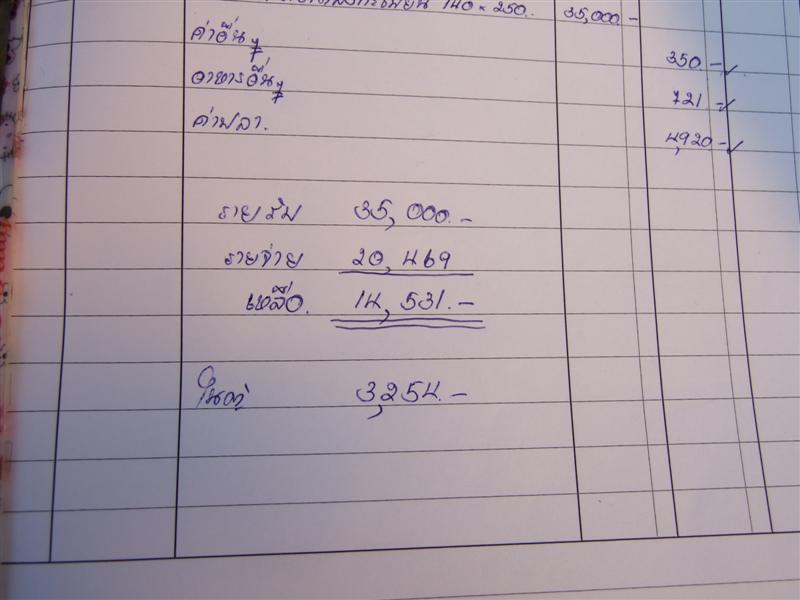 140 × 250.. 35,000.-
ค่าอื่นๆ 350.-
อาหารอื่นๆ 721 -
ค่าปลา. 4,920.-
รายรับ 35,000.-
รายจ่าย 20,469
เหลือ. 14,531.-
3,254.-